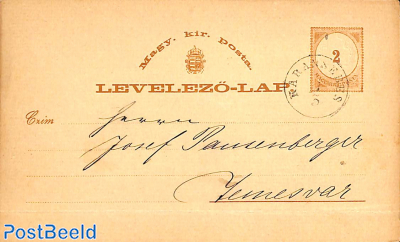 Magy. kir. posta.
2
LEVELEZŐ-LAP
KARANSEBES
Czim
Herrn
Josef Pausenberger
Temesvar
PostBeeld